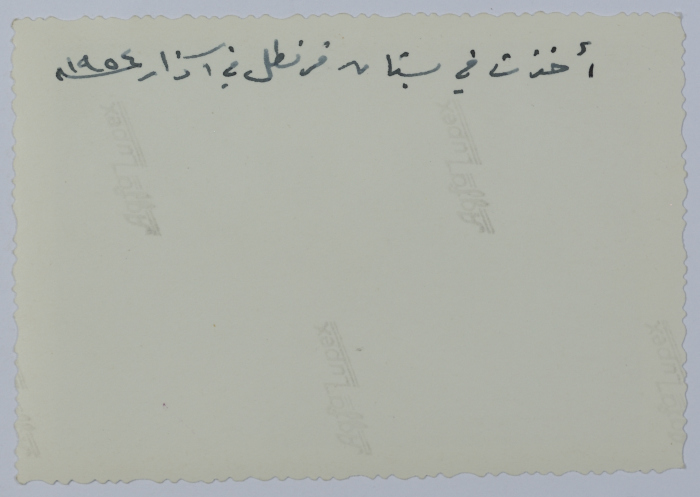 أخذت في بستان قرنطل في آذار ١٩٥٤م
Agfa Lupex
Agfa Lupex
Agfa Lupex
Agfa Lupex